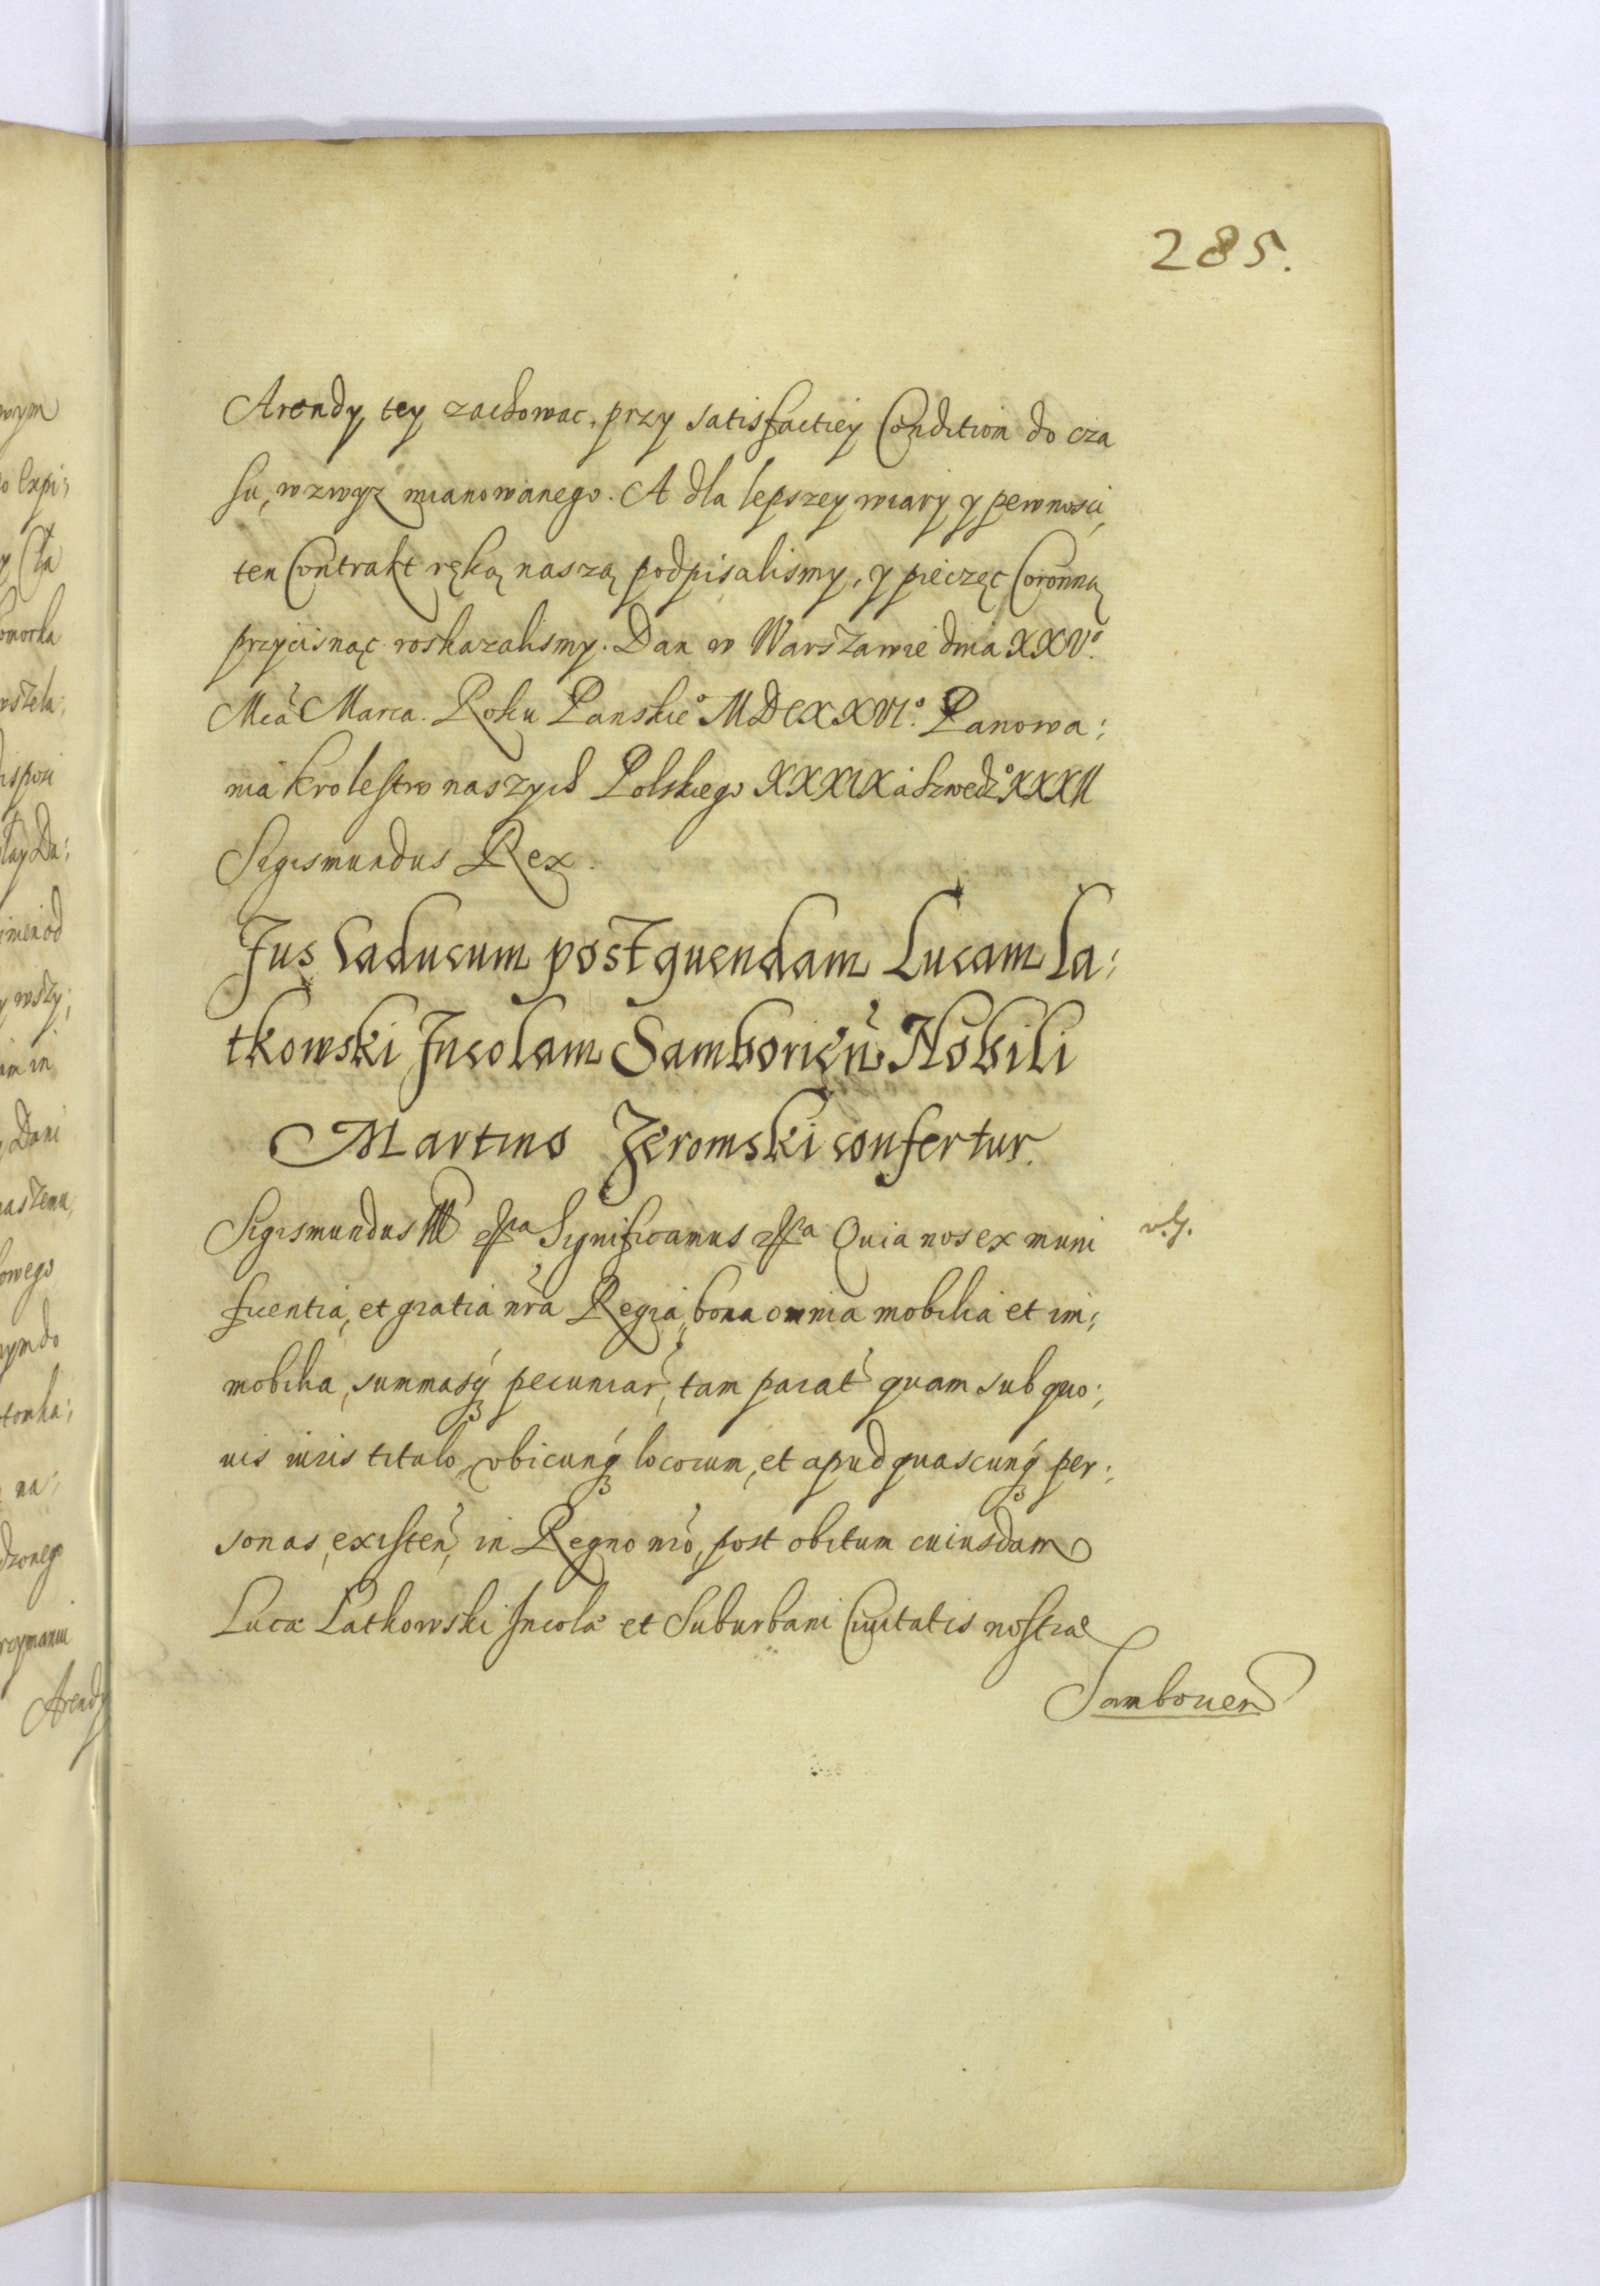 285.
Arendy tey zachowac, przy satisfactiey Condition do cza
su, wzwyz mianowanego. A dla lepszey wiary y pewnosci,
ten Contrakt ręką naszą podpisalismy, y pieczęc Coronną
przycisnąc roskazalismy. Dan w Warszawie dnia XXVº.
Mcă Marca. Roku Panskieº MDCXXVIº. Panowa:
nia krolestw naszych Polskiego XXXIX á Szwedzº XXXII
Sigismundus Rex.
Jus Caducum post quendam Lucam La:
tkowski Incolam Samborień Nobili
Martino Zeromski confertur.
Sigismundus III Significamus Quia nos ex muni
ficentia, et gratia nr̃a Regia, bona omnia mobilia et im:
mobilia, summasq; pecuniar̃, tam parat̃ quam sub quo:
uis iuris titulo, vbicunq; locorum, et apud quascunq; per:
sonas, existeñ, in Regno nr̃o, post obitum cuiusdam
Lucæ Latkowski Incolæ et Suburbani Ciuitatis nostræ
Samborien
o wym
o Expi:
wszela:
ispozi
wszy:
Dani
naszemu
owego
na:
Arendy